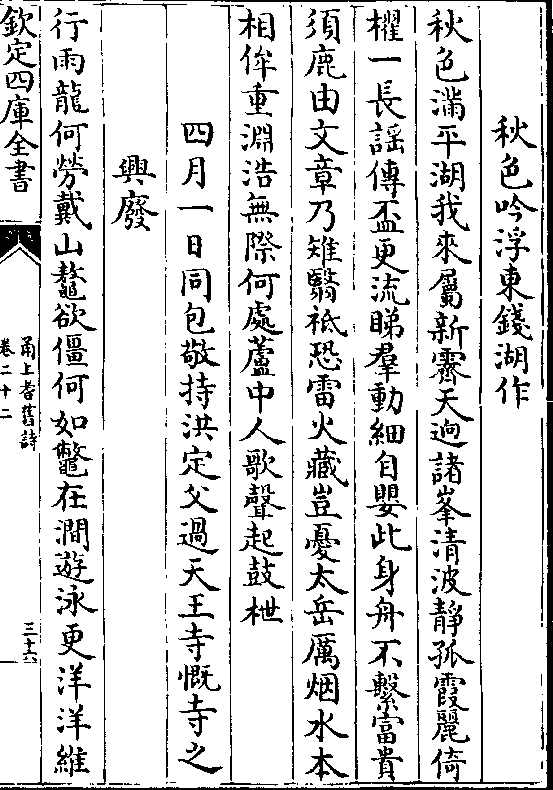 秋色吟浮東錢湖作
秋色滿平湖我來屬新霽天逈諸峯清波靜孤霞麗倚
櫂一長謡傳盃更流睇羣動細自嬰此身舟不繫富貴
須鹿由文章乃雉翳祗恐雷火藏豈憂太岳厲烟水本
相侔重淵浩無際何處蘆中人歌聲起鼓枻
四月一日同包敬持洪定父過天王寺慨寺之
興廢
行雨龍何勞戴山鼇欲僵何如鼈在澗遊泳更洋洋維
欽定四庫全書
甬上耆舊詩
卷二十二
三十六